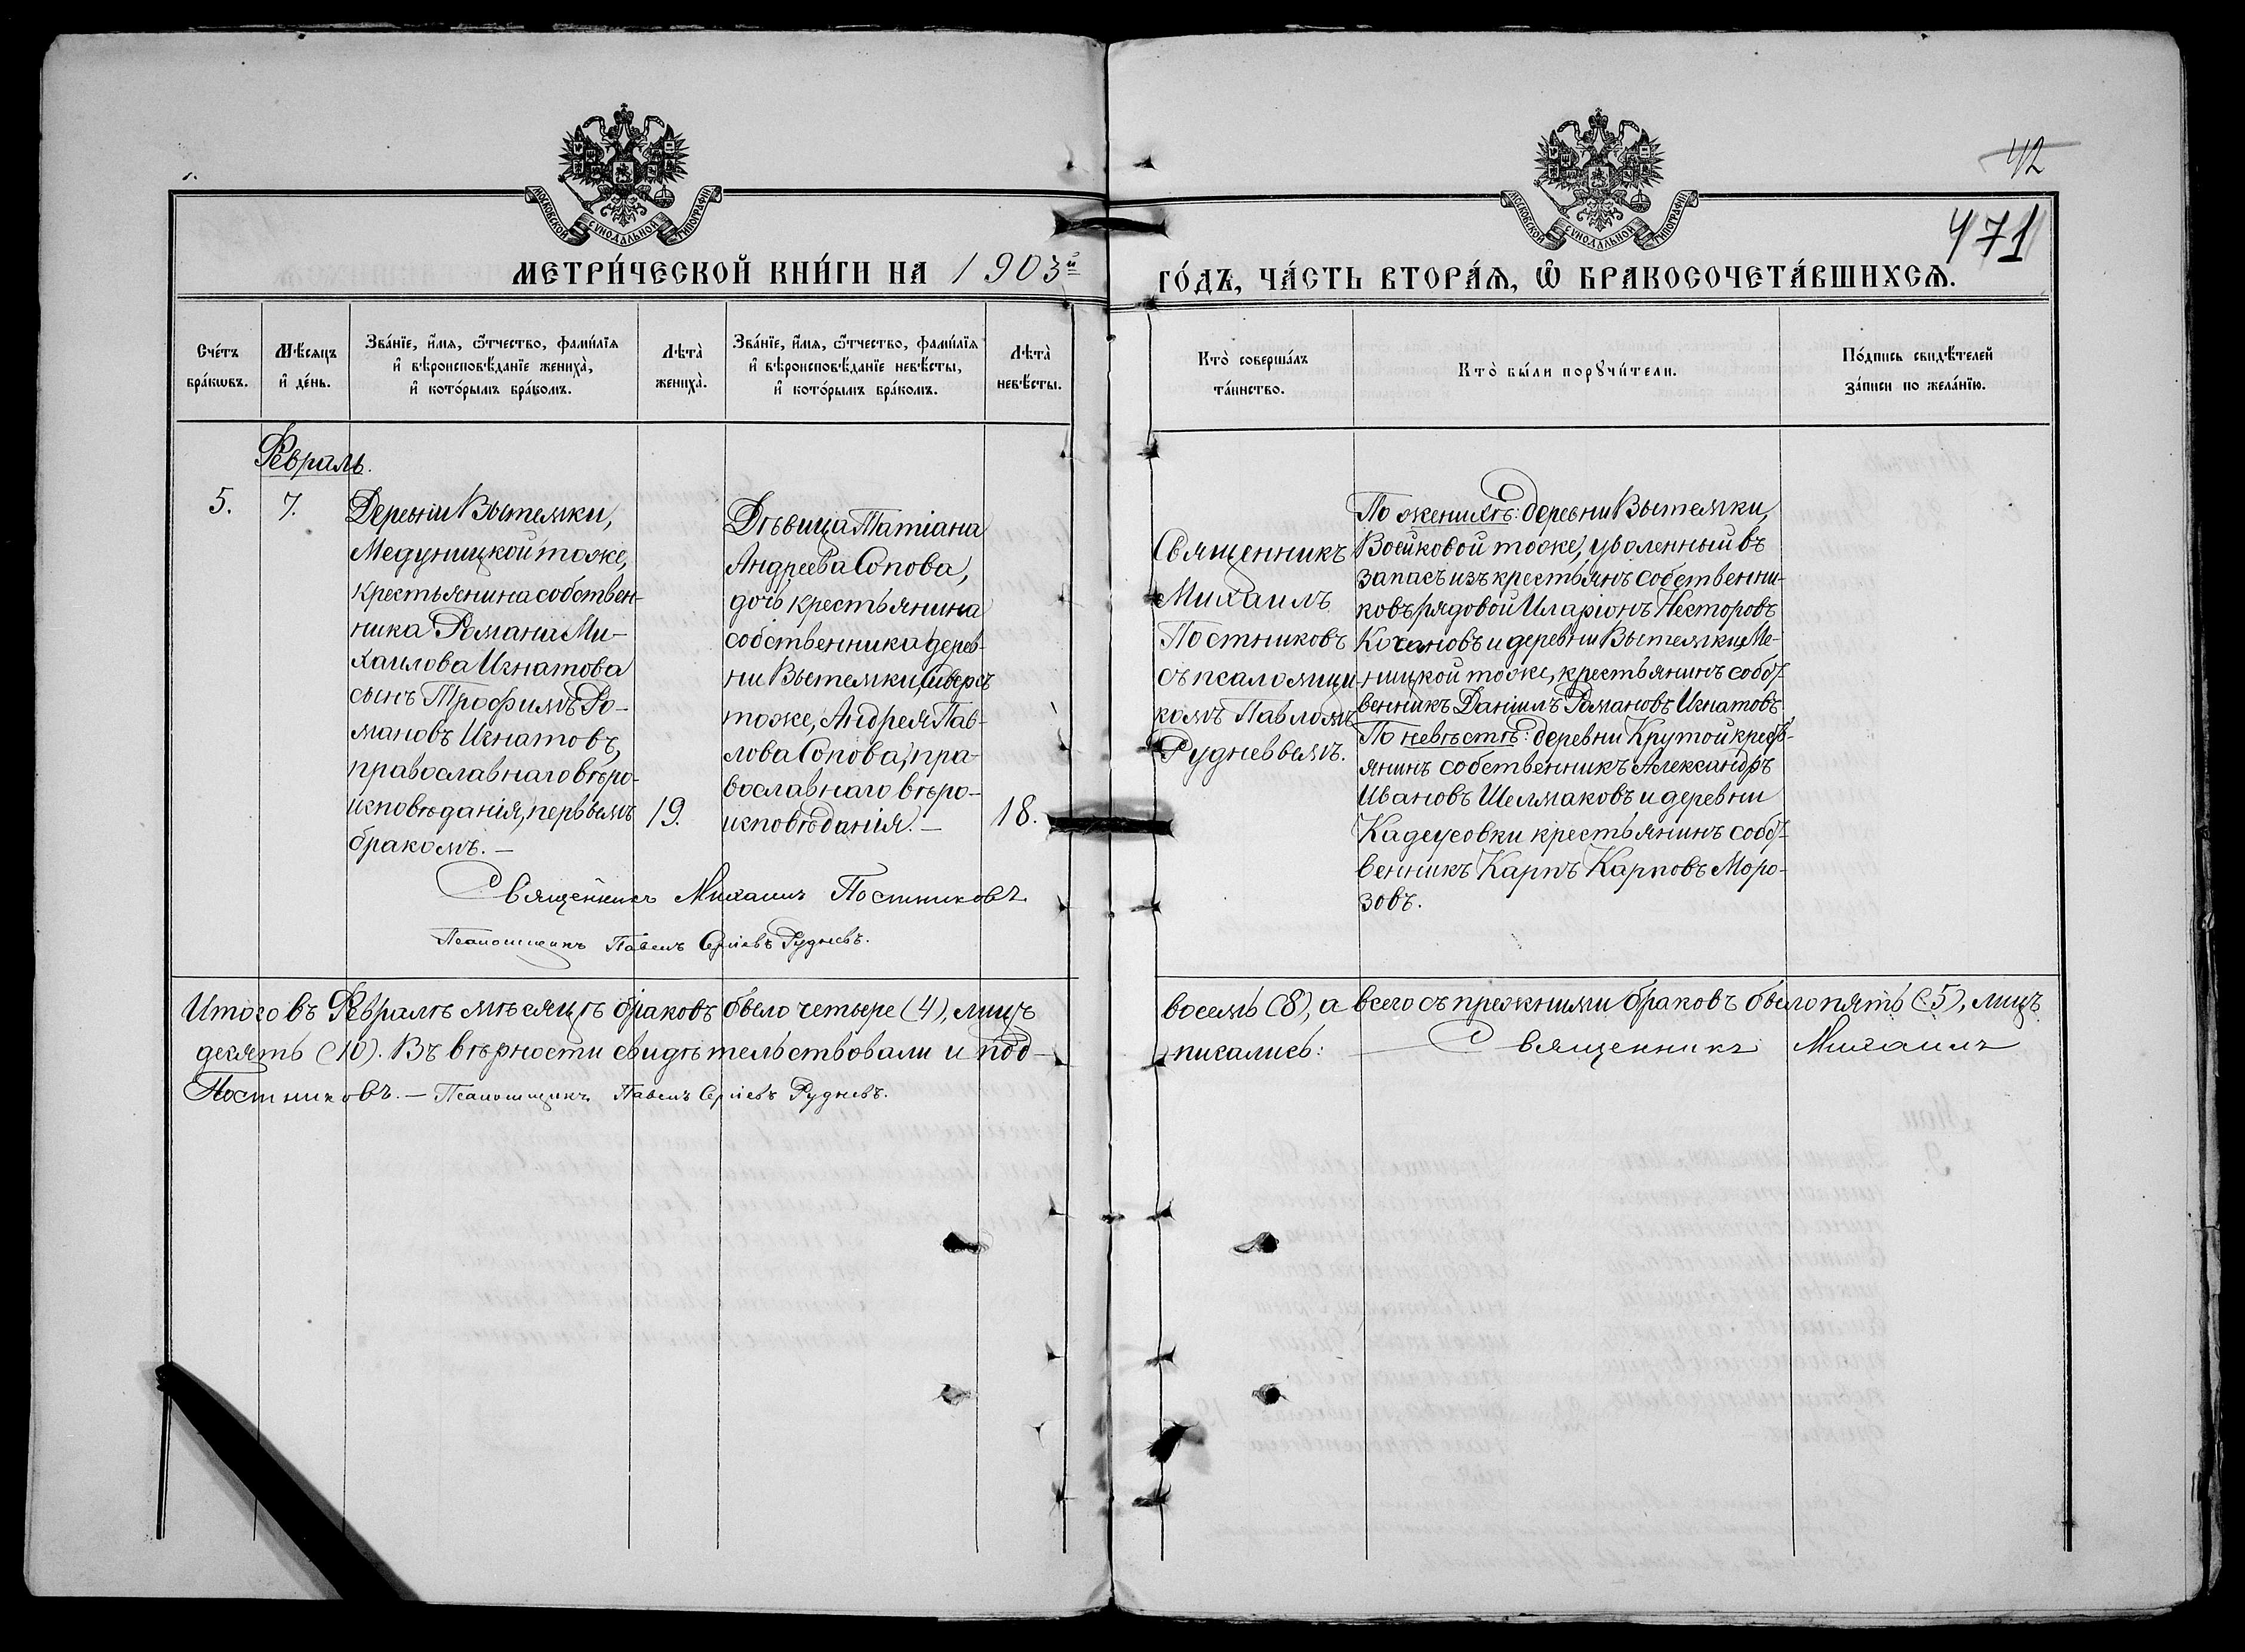 42
471
МОСКОВСКОЙ СУНОДАЛЬНОЙ ТИПОГРАФІИ
МОСКОВСКОЙ СУНОДАЛЬНОЙ ТИПОГРАФІИ
МЕТРИ́ЧЕСКОЙ КНИ́ГИ НА 1903й
ГО́ДЪ, ЧА́СТЬ ВТОРА́Ѧ, Ѡ҆ БРАКОСОЧЕТА́ВШИХСѦ.
Сче́тъ
бра́кѡвъ.
Мѣ́сяцъ
и҆ де́нь.
Зва́нїе, и҆́мя, ѻ҆́тчество, фами́лїя
и҆ вѣроисповѣ́данїе жениха̀,
и҆ кото́рымъ бра́комъ.
Лѣта̀
жениха̀.
Зва́нїе, и҆́мя, ѻ҆́тчество, фами́лїя
и҆ вѣроисповѣ́данїе невѣ́сты,
и҆ кото́рымъ бра́комъ.
Лѣта̀
невѣ́сты.
Кто̀ соверша́лъ
та́инство.
Кто̀ бы́ли порꙋчи́тели.
По́дпись свидѣ́телей
за́писи по жела́нїю.
Февраль.
5.
7.
Деревни Вытемки,
Медуницкой тоже,
крестьянина собствен-
ника Романа Ми-
хаилова Игнатова
сынъ Трофимъ Ро-
мановъ Игнатовъ,
православнаго вѣро-
исповѣданія, первымъ
бракомъ. —
19.
Дѣвица Татіана
Андреева Сопова,
дочь крестьянина
собственника дерев-
ни Вытемки,
тоже, Андрея Пав-
лова Сопова, пра-
вославнаго вѣро-
исповѣданія. —
18.
Священникъ
Михаилъ
Постниковъ
съ псаломщи-
комъ Павломъ
Рудневвымъ.
По женихѣ: деревни Вытемки,
Воейковой тоже, уволенный въ
запасъ изъ крестьянъ собственни-
ковъ рядовой Иларіонъ Несторовъ
Кочановъ и деревни Вытемки, Ме-
ницкой тоже, крестьянинъ собст-
венникъ Даніилъ Романовъ Игнатовъ.
По невѣстѣ: деревни Крутой кресть-
янинъ собственникъ Александръ
Ивановъ Шелмаковъ и деревни
крестьянинъ собст-
венникъ Карпъ Карповъ Моро-
зовъ.
Священникъ Михаилъ Постниковъ
Псаломщикъ Павелъ Сергіевъ Рудневъ.
Итого въ Февралѣ мѣсяцѣ браковъ было четыре (4), лицъ
восемь (8), а всего съ прежними браковъ было пять (5), лицъ
десять (10). Въ вѣрности свидѣтельствовали и под-
писались: — Священникъ Михаилъ
Постниковъ. — Псаломщикъ Павелъ Сергіевъ Рудневъ.